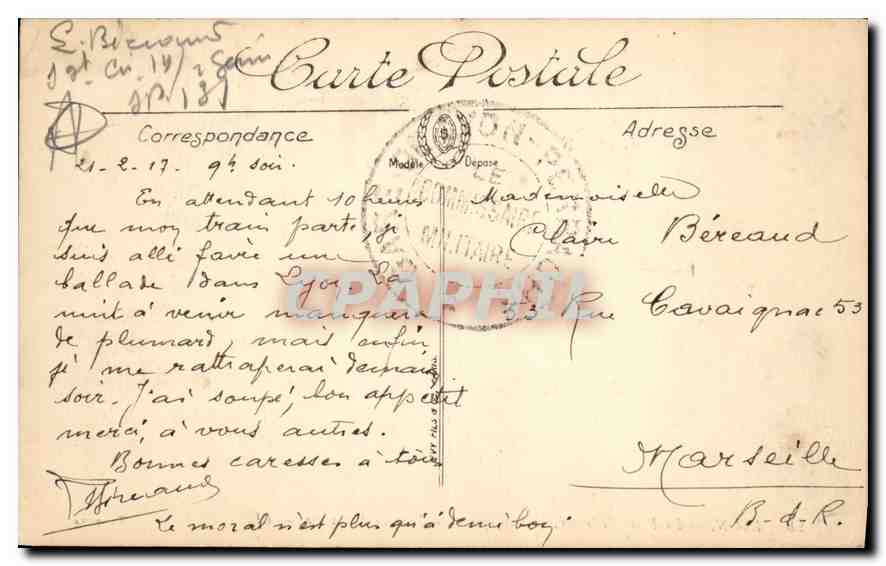 E. Béreaud
Sgt
Carte Postale
Correspondance
Adresse
Modèle Déposé
21-2-17. 9h soir.
En attendant 10 heures
que mon train parte, je
suis allé faire une
ballade dans Lyon. La
nuit à venir manquera
de plumard, mais enfin
je me rattraperai demain
soir. J'ai soupé, bon appétit
merci, à vous autres.
Bonnes caresses à tous
Béreaud
Le moral n'est plus qu'à demi bon.
LE
COMMISSAIRE
MILITAIRE
Mademoiselle
Claire Béreaud
53 Rue Cavaignac 53
Marseille
B-d-R.
CPAPHIL